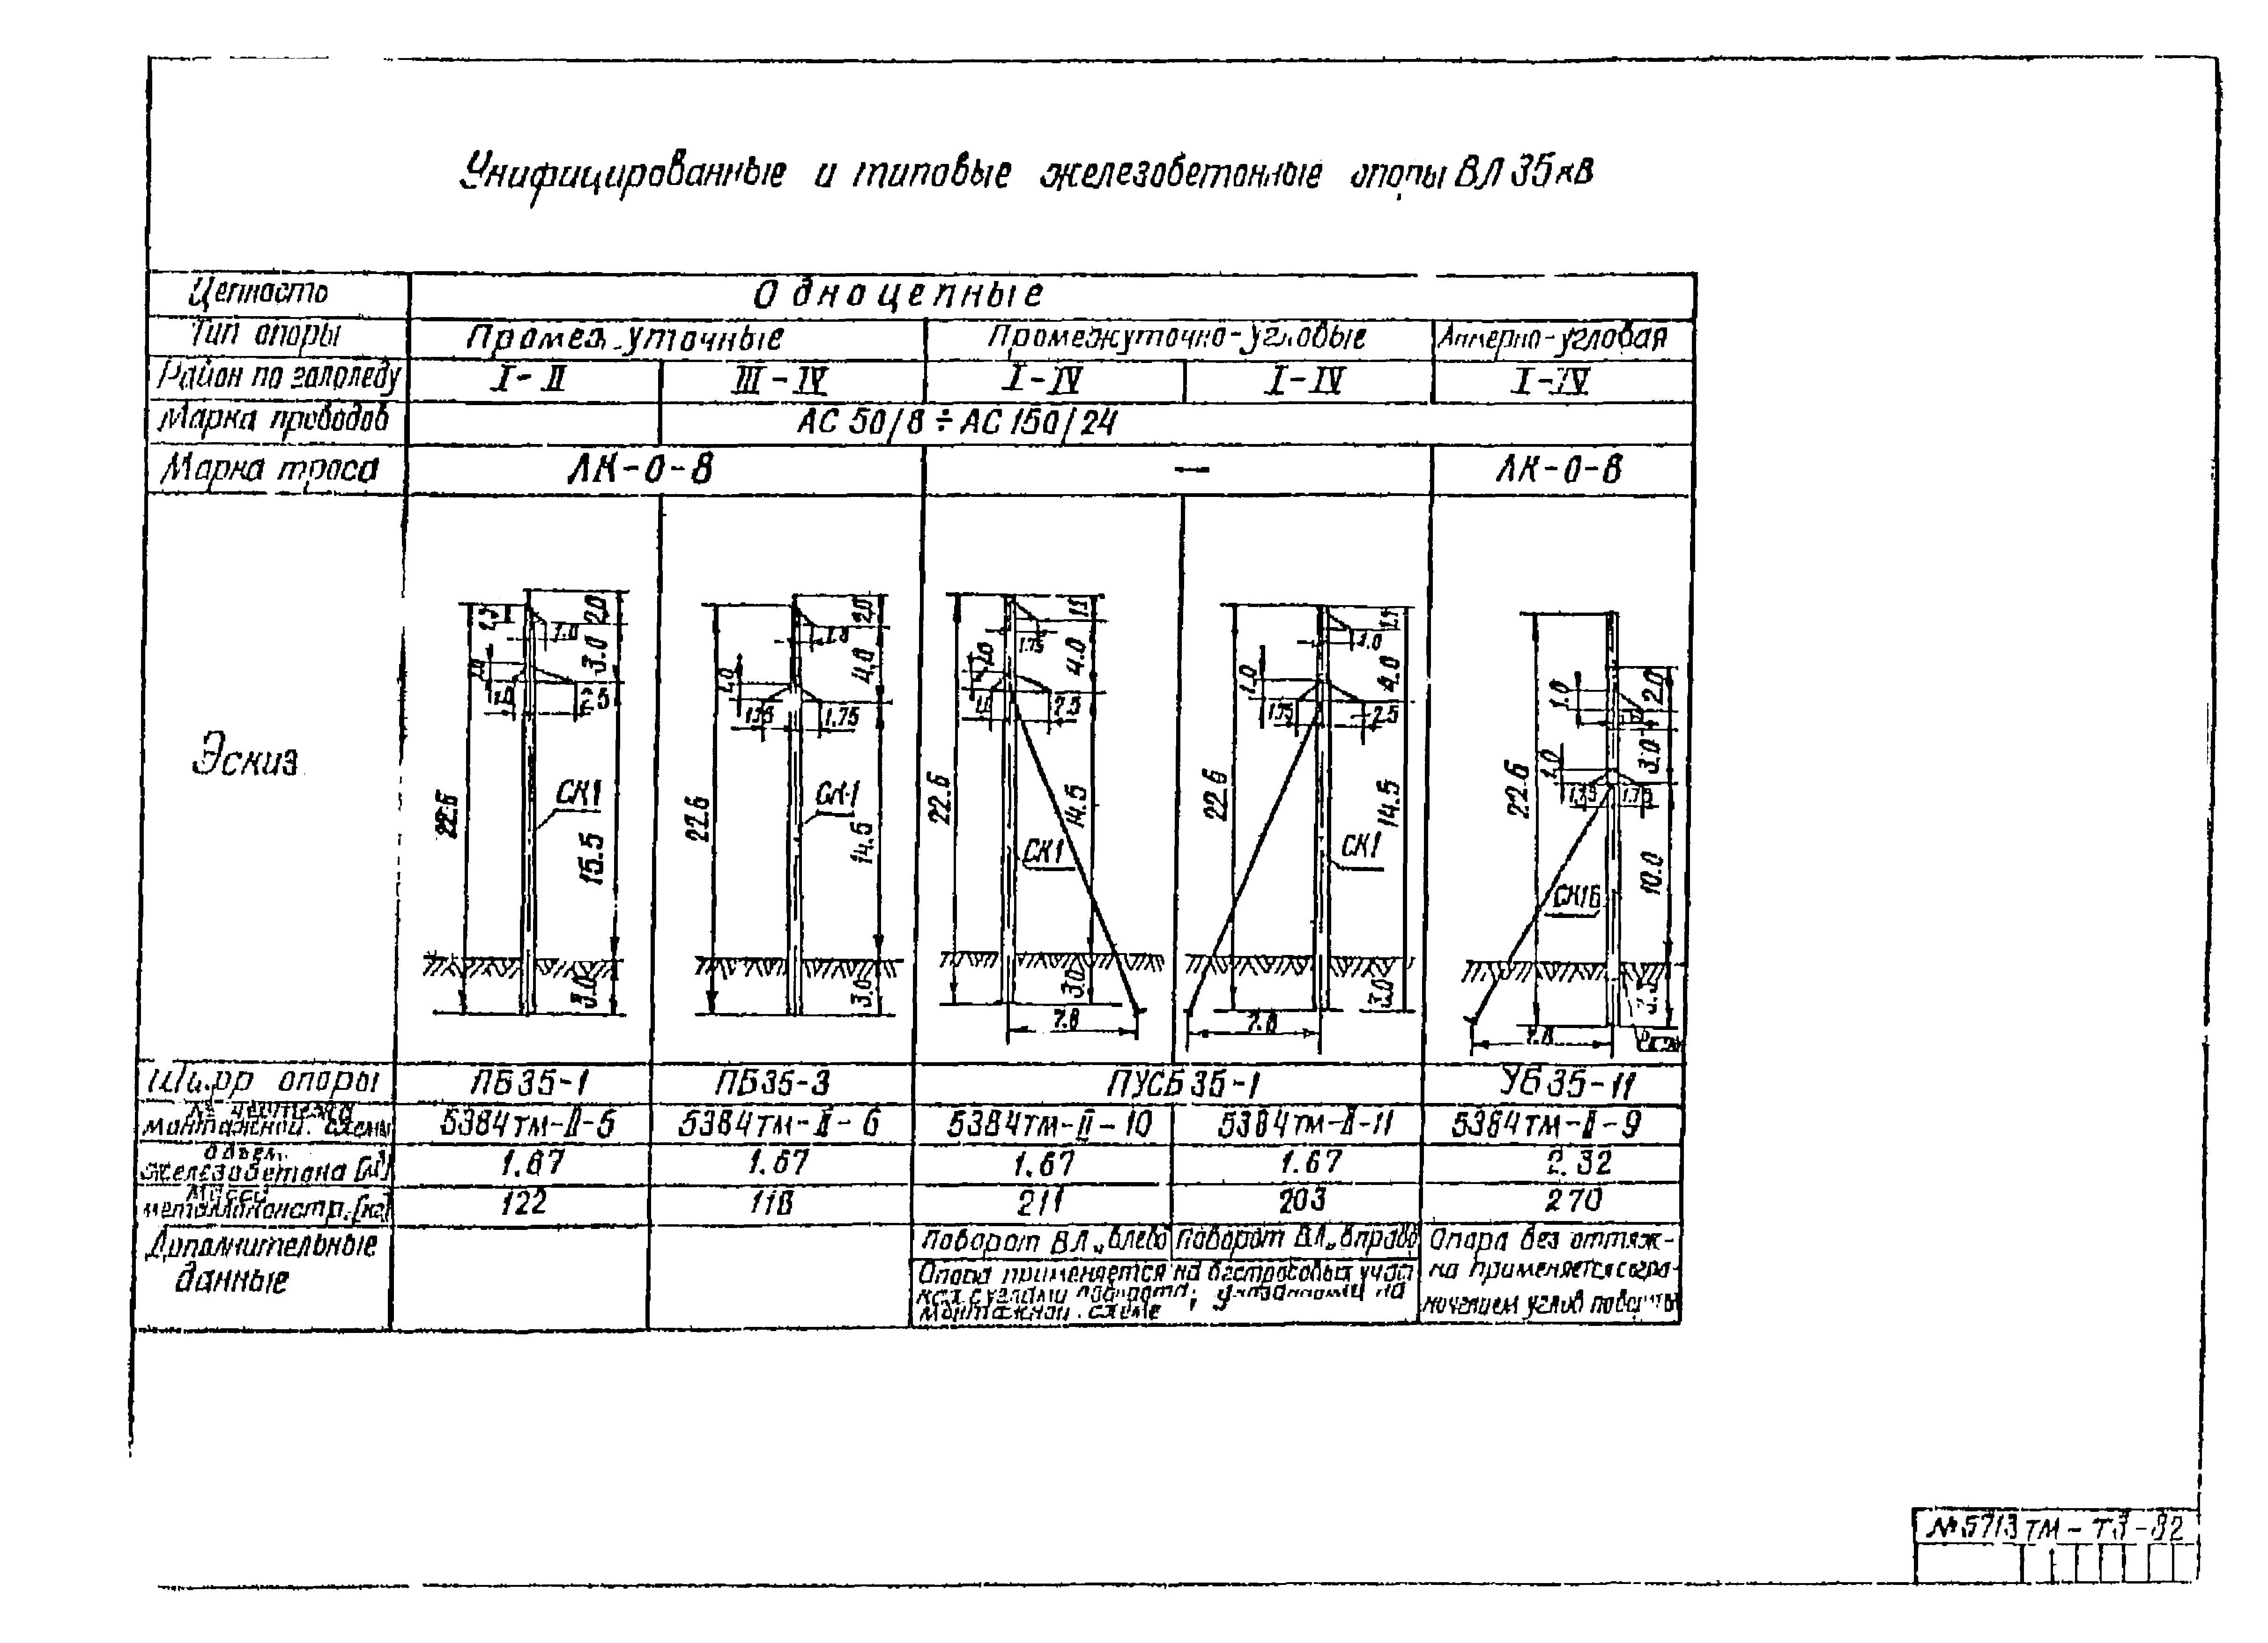 Унифицированные и типовые железобетонные опоры ВЛ 35кВ
Цепность Одноцепные
Тип опоры Промежуточные Промежуточно-угловые Анкерно-угловая
Район по гололеду I-II III-IV I-IV I-IV I-IV
Марка проводов АС 50/8 ÷ АС 150/24
Марка троса ЛК-0-8 — ЛК-0-8
Эскиз
2,0 1.0 3.0 1.0 2.5 22.6 СК1 15.5 3.0
2,0 4.0 1.0 1.75 1.75 22.6 СК-1 14.5 3.0
1.1 1.75 4.0 2.5 22.6 14.5 СК1 3.0 7.8
1.0 4.0 1.0 1.75 2.5 22.6 14.5 СК1 3.0 7.8
1.0 2.0 3.0 1.0 1.75 1.75 22.6 10.0 СК1б 7.8
Шифр опоры ПБ35-1 ПБ35-3 ПУСБ35-1 УБ35-11
№ чертежа
монтажной схемы 5384тм-II-5 5384тм-II-6 5384тм-II-10 5384тм-II-11 5384тм-II-9
Объем
железобетона [м³] 1.67 1.67 1.67 1.67 2.32
Масса
металлоконстр. [кг] 122 118 211 203 270
Дополнительные
данные
Поворот ВЛ „влево
Поворот ВЛ „вправо
Опора применяется на бестросовых участ
ках с углами поворота, указанными на
монтажной схеме
Опора без оттяж-
ки применяется с огра-
ничением углов поворота
№5713тм-Т3-32